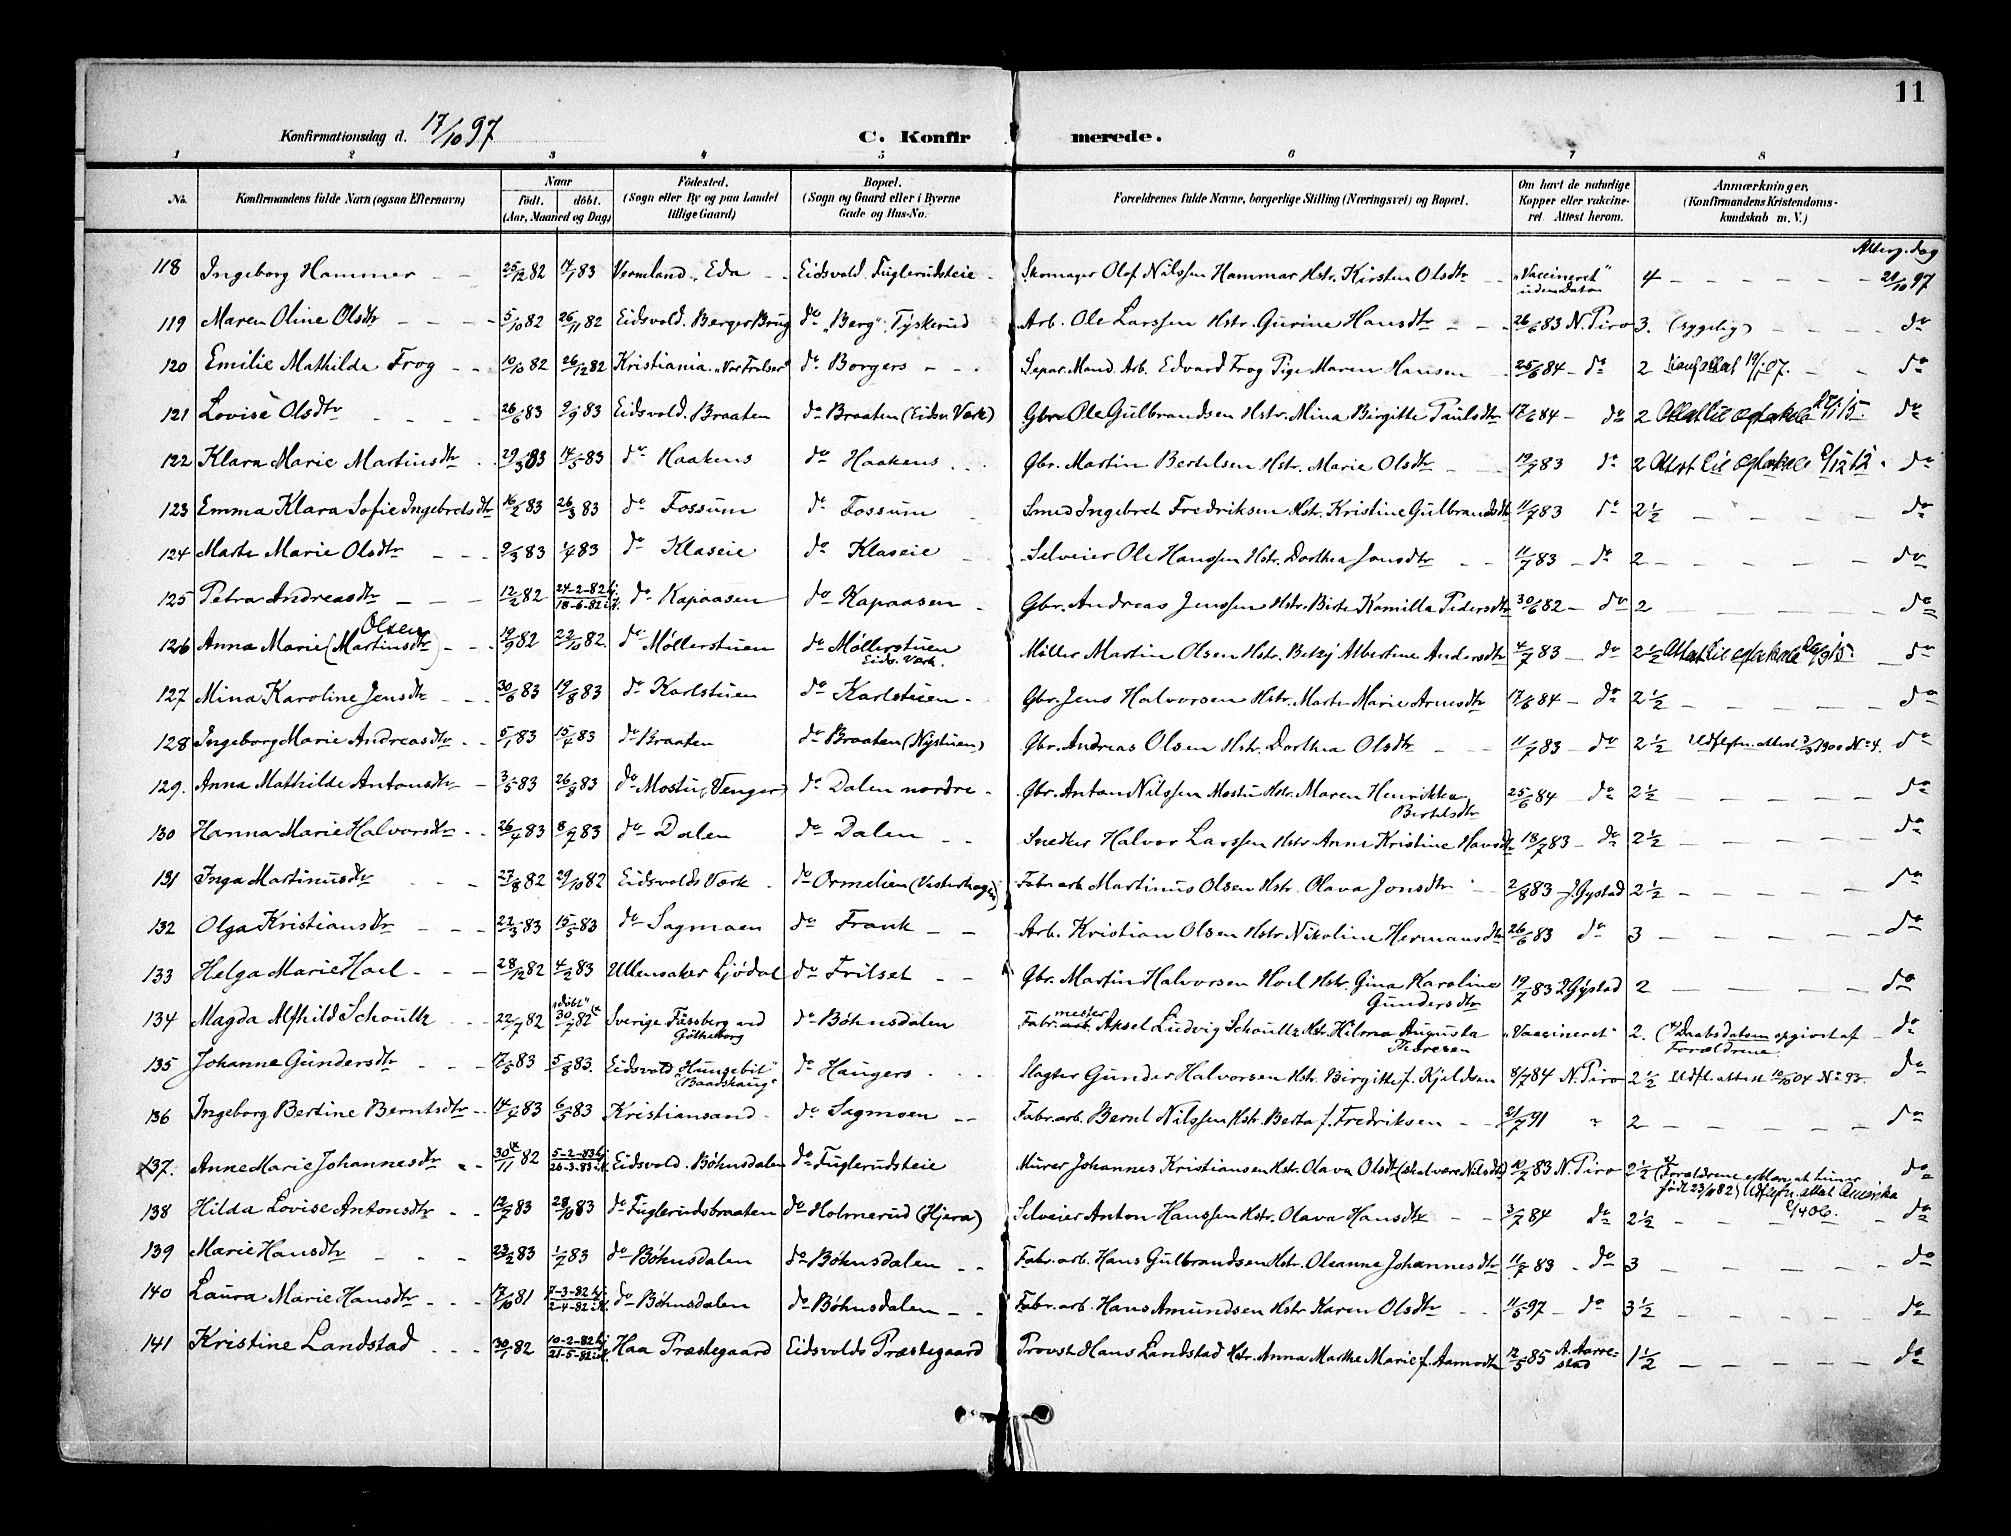 11
Konfirmationsdag d. 17/10 97
C. Konfirmerede.
1 2 3 4 5 6 7 8
No. Konfirmandens fulde Navn (ogsaa Efternavn) Naar Födt. döbt. (Aar, Maaned og Dag) Födested. (Sogn eller By og paa Landet tillige Gaard) Bopæl. (Sogn og Gaard eller i Byerne Gade og Hus-No. Forældrenes fulde Navne, borgerlige Stilling (Næringsvei) og Bopæl. Om havt de naturlige Kopper eller vaccineret. Attest herom. Anmærkninger. (Konfirmandens Kristendomskundskab m. V.)
118 Ingeborg Hammer 25/12 82 14/1 83 Vermeland, Eda Eidsvold. Fuglerudseie Skomager Olof Nilssen Hammar Hstr. Kirsten Olsdtr "Vaccineret" uden Datum 4 Alterg. dag 21/10 97
119 Maren Oline Olsdtr 5/10 82 26/11 82 Eidsvold. Berger Brug do "Berg", Tyskerud Arb. Ole Larssen Hstr. Gurine Hansdtr 26/6 83 N. Piro 3. (sygelig) do
120 Emilie Mathilde Frog 10/10 82 26/12 82 Kristiania. "Vor Frelser" do Borgers Separ. Mand. Arb. Edvard Frog Pige Maren Hansen 25/6 84 do 2 do
121 Lovise Olsdtr 26/6 83 9/9 83 Eidsvold. Braaten do Braaten (Eidsv. Værk) Gbr Ole Gulbrandsen Hstr. Mina Birgitte Paulsdtr 17/6 84 do 2 do
122 Klara Marie Martinsdtr 29/3 83 14/5 83 do Haakens do Haakens Gbr. Martin Berthelsen Hstr. Marie Olsdtr 19/7 83 do 2 do
123 Emma Klara Sofie Ingebretsdtr 16/2 83 26/3 83 do Fossum do Fossum Smed Ingebret Fredriksen Hstr. Kristine Gulbrandsdtr 11/7 83 do 2½ do
124 Marte Marie Olsdtr 9/3 83 1/7 83 do Klaseie do Klaseie Selveier Ole Hanssen Hstr. Dorthea Jonsdtr 11/7 83 do 2 do
125 Petra Andreasdtr 12/2 82 24-2-82 hj. 18-6-82 i k. do Kapaasen do Kapaasen Gbr. Andreas Jenssen Hstr. Birte Kamilla Pedersdtr 30/6 82 do 2 do
126 Anna Marie (Martinsdtr) Olsen 19/9 82 22/10 82. do Møllerstuen do Møllerstuen Eids. Værk. Møller Martin Olsen Hstr. Betzy Albertine Andersdtr 4/7 83 do 2½ do
127 Mina Karoline Jensdtr 30/6 83 19/8 83 do Karlstuen do Karlstuen Gbr. Jens Halvorsen Hstr. Marte Marie Arnesdtr 17/6 84 do 2½ do
128 Ingeborg Marie Andreasdtr 5/1 83 15/4 83 do Braaten do Braaten (Nystuen) Gbr. Andreas Olsen Hstr. Dorthea Olsdtr 11/7 83 do 2½ Udflytn. attest 3/3 1900 No 4. do
129. Anna Mathilde Antonsdtr 3/5 83 26/8 83 do Mostu (Venger) do Dalen nordre Gbr. Anton Nilssen Mostu Hstr. Maren Henrikke Berthelsdtr 25/6 84 do 2½ do
130 Hanna Marie Halvorsdtr 26/4 83 8/7 83 do Dalen do Dalen Snedker Halvor Larssen Hstr Anne Kristine Hansdtr 18/7 83 do 2½ do
131 Inga Martinusdtr 27/8 82 29/10 82 Eidsvolds Værk do Ormelien (Vesterhagen) Fabr. arb. Martinus Olsen Hstr. Olava Jonsdtr 2/8 83 J. Gystad 2½ do
132 Olga Kristiansdtr 22/3 83 15/5 83 do Sagmoen do Frank Arb. Kristian Olsen Hstr Nikoline Hermansdtr 26/6 83 do 3 do
133 Helga Marie Hoel 28/12 82 4/2 83 Ullensaker Ljødal do Frilset Gbr. Martin Halvorsen Hoel Hstr. Gina Karoline Gundersdtr 19/7 83 J. Gystad 2 do
134 Magda Alfhild Schoultz 22/7 82 "döbt" 30/7 82 Sverige Fässberg ved Götheborg do Bøhnsdalen Fabr. mester Aksel Ludvig Schoultz Hstr. Hilma Augusta Thoresen "Vaccineret" 2. (Daabsdatum opgivet af Forældrene do
135 Johanne Gundersdtr 17/5 83 5/8 83. Eidsvold Hungebit "Baadshaug" do Haugers Slagter Gunder Halvorsen Hstr. Birgitte f. Kjeldsen 8/7 84 N. Piro 2½ Udfl. attest 10/10 04. No 93. do
136 Ingeborg Bertine Berntsdtr 14/2 83 6/5 83 Kristiansand do Sagmoen Fabr. arb. Bernt Nilssen Hstr. Berta f. Fredriksen 21/7 91 " 2 do
137. Anne Marie Johannesdtr 30/11 82 5-2-83 hj 26-3-83 i k. Eidsvold. Bøhnsdalen do Fuglerudseie Murer Johannes Kristiansen Hstr. Olava Olsdtr (skal være Nilsdtr) 10/7 83 N. Piro 2½ (Forældrene at hun er født 23/11 82) Udflytn. attest Amerika do
138 Hilda Lovise Antonsdtr 12/7 83 28/10 83 do Fuglerudsbraaten do Holmerud (Hjera) Selveier Anton Hanssen Hstr. Olava Hansdtr 3/7 84 do 2½ do
139 Marie Hansdtr 23/2 83 1/7 83 do Bøhnsdalen do Bøhnsdalen Fabr. arb. Hans Gulbrandsen Hstr. Oleanne Johannesdtr 11/7 83 do 3 do
140 Laura Marie Hansdtr 17/10 81 7-3-82 hj. 2-4-82 i k. do Bøhnsdalen do Bøhnsdalen Fabr. arb. Hans Amundsen Hstr Karen Olsdtr 11/5 97 do 3½ do
141 Kristine Landstad 30/1 82 10-2-82 hj. 21-5-82 i k. Haa Præstegaard Eidsvolds Præstegaard Provst Hans Landstad Hstr. Anna Marthe Marie f. Aamodt 12/5 85 A. Aarrestad 1½ do